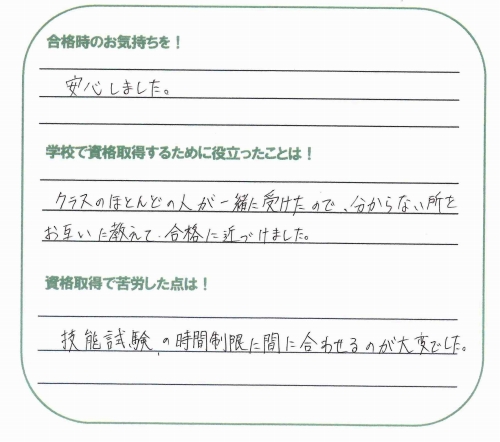 合格時のお気持ちを！
安心しました。
学校で資格取得するために役立ったことは！
クラスのほとんどの人が一緒に受けたので、分からない所を
お互いに教えて、合格に近づけました。
資格取得で苦労した点は！
技能試験の時間制限に間に合わせるのが大変でした。